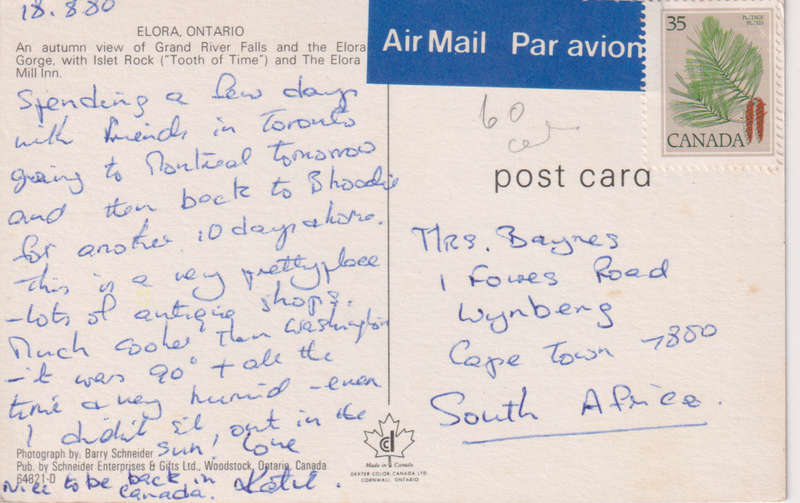 18.8.80
ELORA, ONTARIO
An autumn view of Grand River Falls and the Elora
Gorge, with Islet Rock ("Tooth of Time") and The Elora
Mill Inn.
Spending a few days
with friends in Toronto
going to Montreal tomorrow
and then back to
for another 10 days + home.
This is a very pretty place
-lots of antique shops.
Much cooler than Washington
-it was 90° + all the
time & very humid - even
I didn't sit out in the
sun! Love
Nice to be back in
Canada.
Photograph by: Barry Schneider
Pub. by Schneider Enterprises & Gifts Ltd., Woodstock, Ontario, Canada
64821-D
Air Mail Par avion
35
CANADA
60
post card
Mrs. Baynes
1 Fowes Road
Wynberg
Cape Town 7800
South Africa.
Made in Canada
DEXTER COLOR CANADA LTD.
CORNWALL, ONTARIO